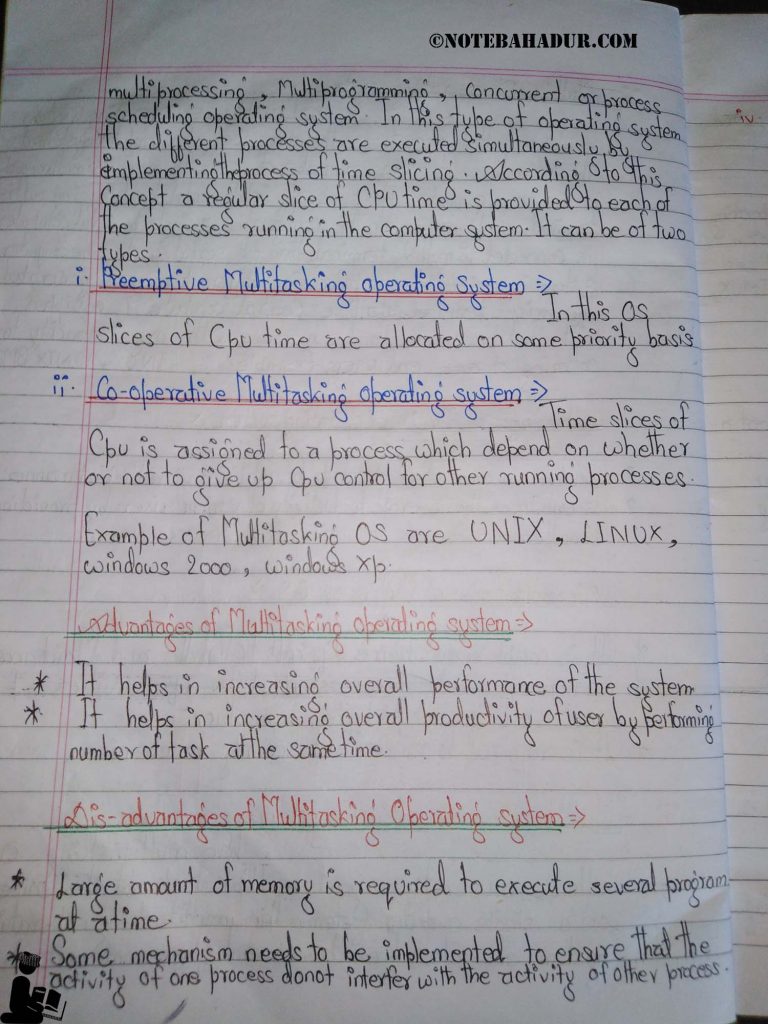 ©NOTEBAHADUR.COM
iv
multiprocessing, Multiprogramming, Concurrent or process
scheduling operating system. In this type of operating system
the different processes are executed simultaneously by
implementing the process of time slicing. According to this
Concept a regular slice of CPU time is provided to each of
the processes running in the computer system. It can be of two
types.
i. Preemptive Multitasking operating system ⇒
In this OS
slices of Cpu time are allocated on some priority basis
ii. Co-operative Multitasking Operating system ⇒
Time slices of
Cpu is assigned to a process which depend on whether
or not to give up Cpu control for other running processes.
Example of Multitasking OS are UNIX, LINUX,
windows 2000, windows xp.
Advantages of Multitasking operating system ⇒
* It helps in increasing overall performance of the system
* It helps in increasing overall productivity of user by performing
number of task at the same time.
Dis-advantages of Multitasking Operating system ⇒
* Large amount of memory is required to execute several program
at a time.
* Some mechanism needs to be implemented to ensure that the
activity of one process donot interfer with the activity of other process.